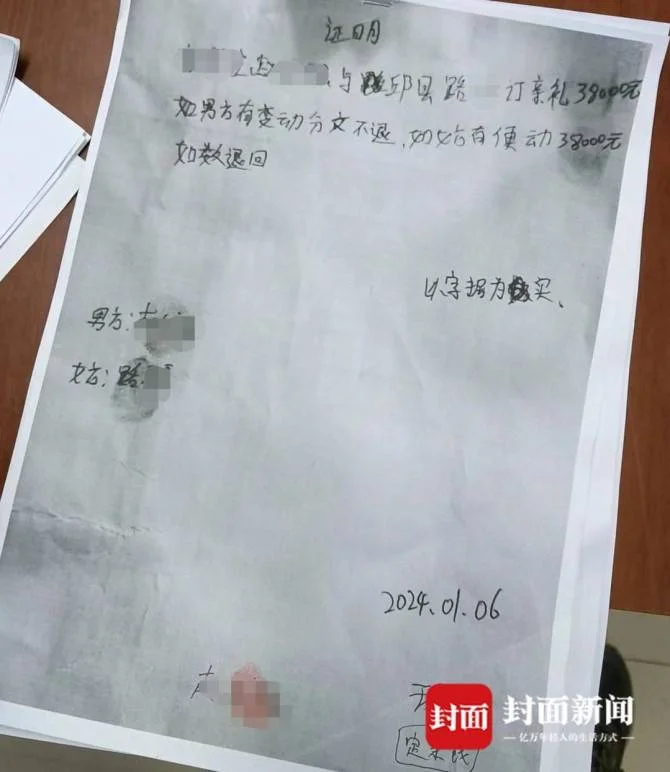 证明
与 邱县路 订亲礼38000元
如男方有变动分文不退,如女方有便动38000元
如数退回
以字据为实、
男方:
女方:路
2024.01.06
封面 封面新闻
亿万年轻人的生活方式